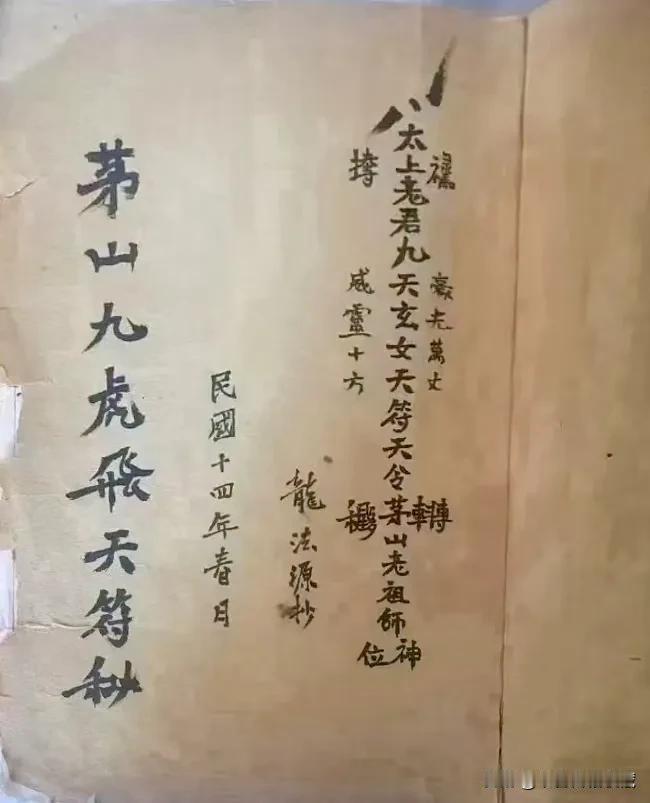 豪光萬丈
太上老君九天玄女天符天令茅山老祖師神位
威靈十六
龍法源抄
民國十四年春月
茅山九虎飛天符秘